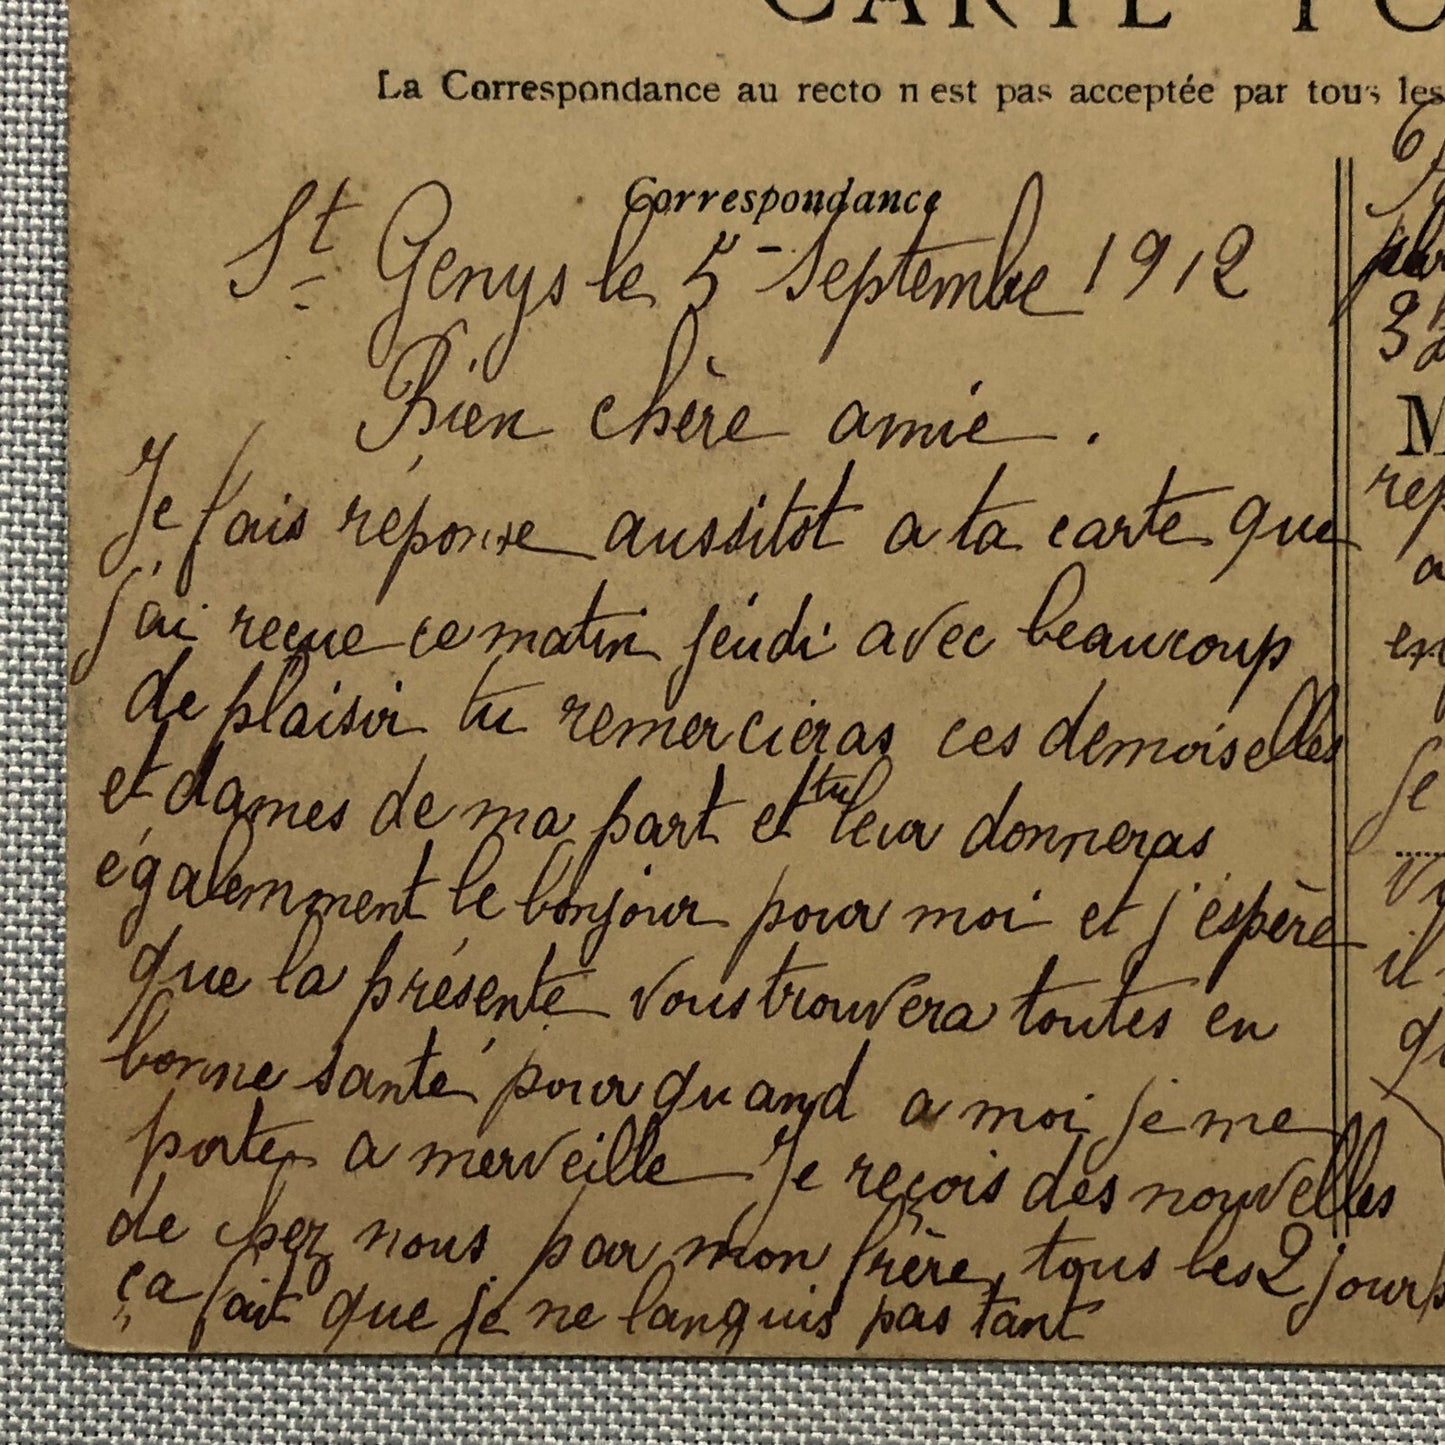 CARTE PO
La Correspondance au recto n'est pas acceptée par tous les
Correspondance
St Genys le 5 - Septembre 1912
Bien chère amie.
Je fais réponse aussitot a ta carte que
j'ai reçue ce matin jeudi avec beaucoup
de plaisir tu remercieras ces demoiselles
et dames de ma part et tu leur donneras
égalemment le bonjour pour moi et j'éspère
que la présente vous trouvera toutes en
bonne santé pour quand a moi je me
porte a merveille Je reçois des nouvelles
de chez nous par mon frère, tous les 2 jours
ça fait que je ne languis pas tant
32
M
rep
a
en
je
il